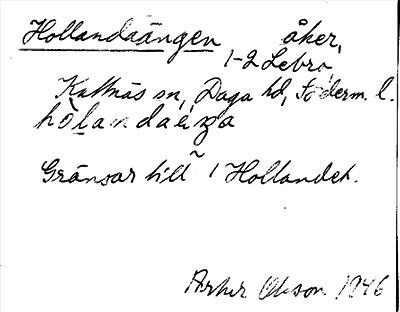 Hollandaängen åker,
1-2 Lebro,
Kattnäs sn, Daga hd, Söderm. l.
hòlandaèŋa
Gränsar till 1 Hollandet.
Arthur Olsson 1946